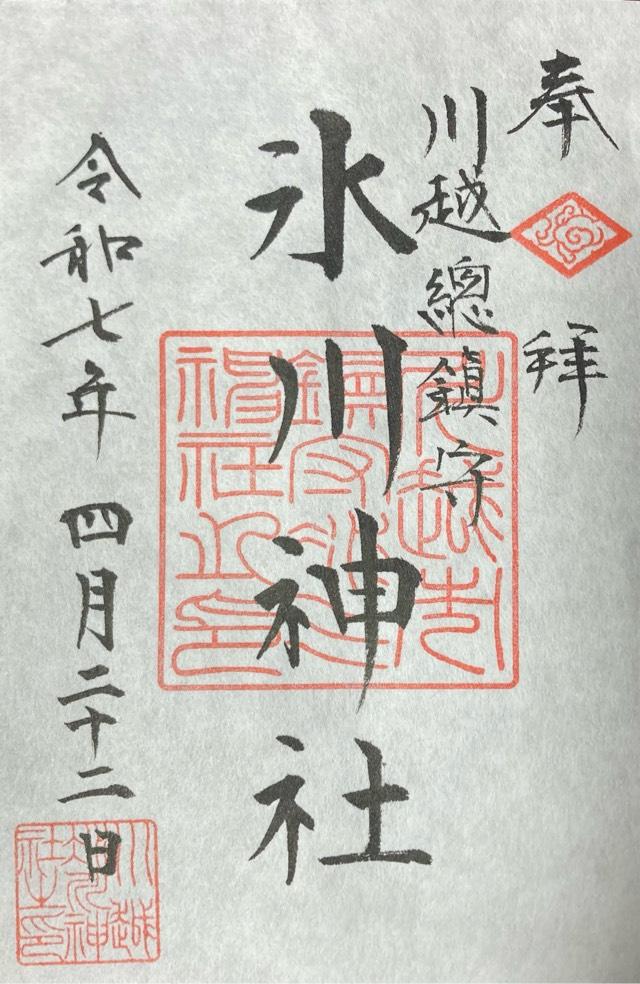 奉拝
川越總鎮守
氷川神社
令和七年 四月二十二日